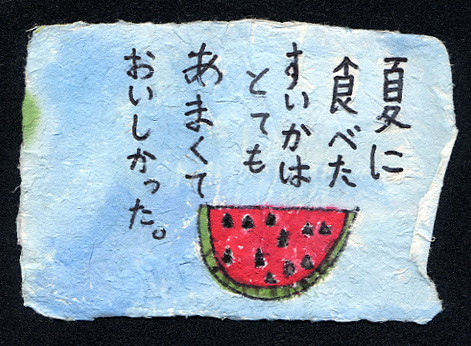 夏に
食べた
すいかは
とても
あまくて
おいしかった。